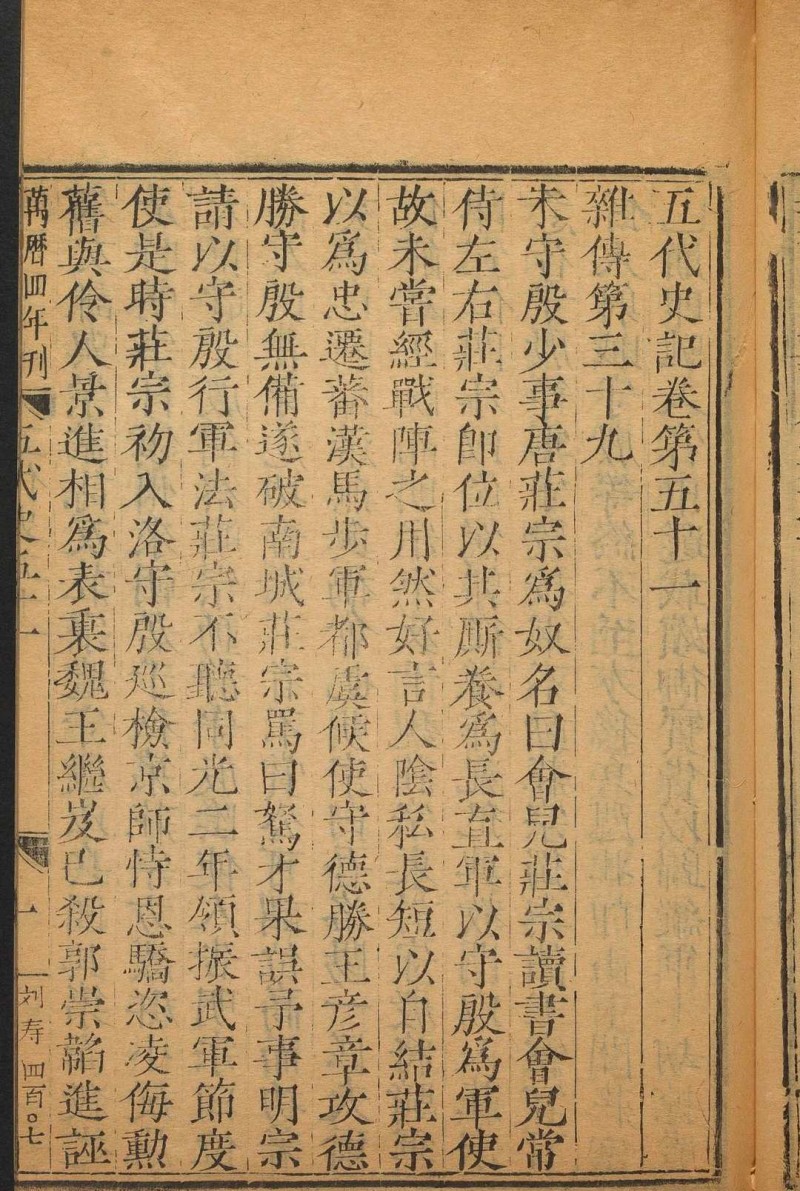 五代史記卷第五十一
雜傳第三十九
朱守殷少事唐莊宗爲奴名曰會兒莊宗讀書會兒常
侍左右莊宗即位以其廝養爲長直軍以守殷爲軍使
故未嘗經戰陣之用然好言人陰私長短以自結莊宗
以爲忠遷蕃漢馬步軍都虞候使守德勝王彥章攻德
勝守殷無備遂破南城莊宗罵曰駑才果誤予事明宗
請以守殷行軍法莊宗不聽同光二年領振武軍節度
使是時莊宗初入洛守殷巡檢京師恃恩驕恣凌侮勲
舊與伶人景進相爲表裏魏王繼岌已殺郭崇韜進誣
萬曆四年刊
五代史五十一
一
刘寿 四百〇七